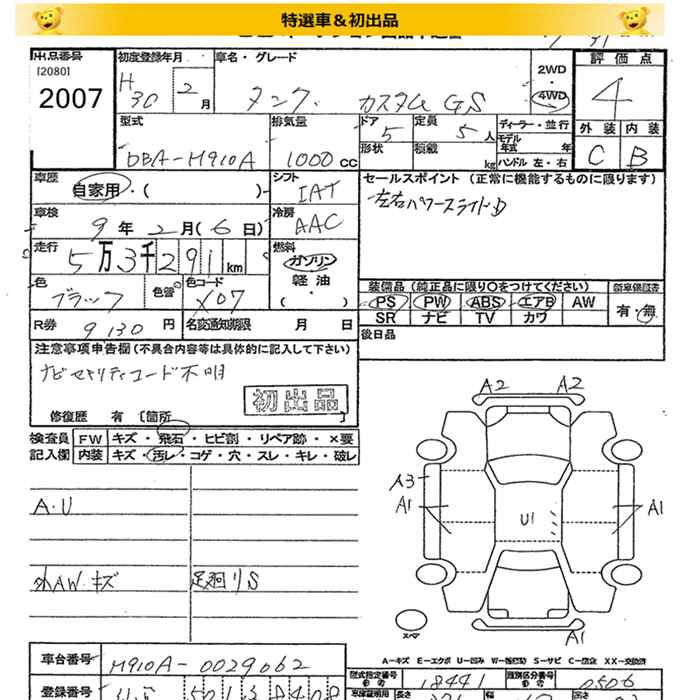 特選車＆初出品
出品番号 初度登録年月 車名・グレード 2WD・4WD 評価点
[2080]
2007 H30 2月 タンク カスタムGS 4
型式 排気量 ドア 定員 ディーラー・並行 外装 内装
DBA-M910A 1000CC 5 5人 モデル年式 年 C B
形状 積載 kg ハンドル 左・右
車歴 自家用・( ) シフト IAT セールスポイント (正常に機能するものに限ります)
車検 9年2月(6日) 冷房 AAC 左右パワースライドD
走行 5万3千291km 燃料 ガソリン・軽油・( )
色 ブラック 色替 色コード X07
装備品 (純正品に限り○をつけてください) 新車保証書
PS PW ABS エアB AW 有・無
SR ナビ TV カワ
R券 9130円 名変通知期限 月 日
後日品
注意事項申告欄 (不具合内容等は具体的に記入して下さい)
ナビセキュリティコード不明
初出品
修復歴 有 [箇所 ]
検査員記入欄 FW キズ・飛石・ヒビ割・リペア跡・×要
内装 キズ・汚レ・コゲ・穴・スレ・キレ・破レ
A2 A2
A3
A1 A1
U1
A・U
外AW・キズ 足廻りS
スペア
A1
A-キズ E-エクボ U-凹ミ W-補修跡 S-サビ C-腐食 XX-交換済
車台番号 M910A-0029062
型式指定番号 18441 類別区分番号 0506
登録番号